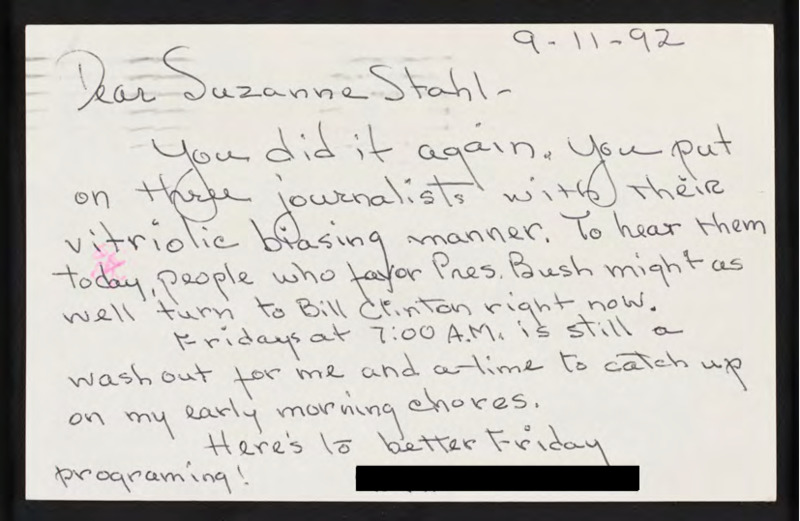 9-11-92
Dear Suzanne Stahl-
You did it again. You put
on three journalists with their
vitriolic biasing manner. To hear them
today, people who favor Pres. Bush might as
well turn to Bill Clinton right now.
Fridays at 7:00 A.M. is still a
wash out for me and a time to catch up
on my early morning chores.
Here's to better Friday
programing!